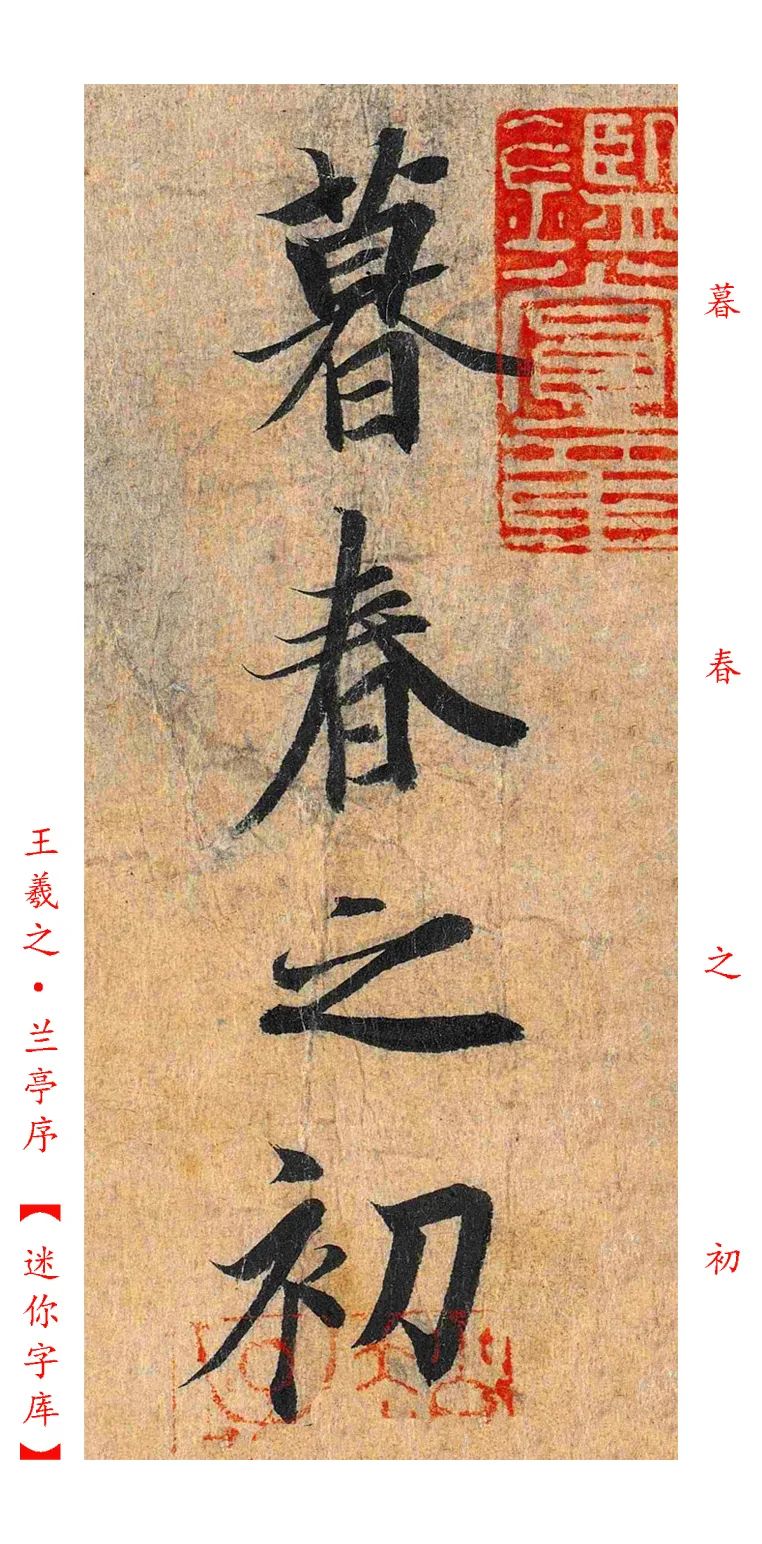 暮春之初
暮春之初
王羲之·兰亭序【迷你字库】